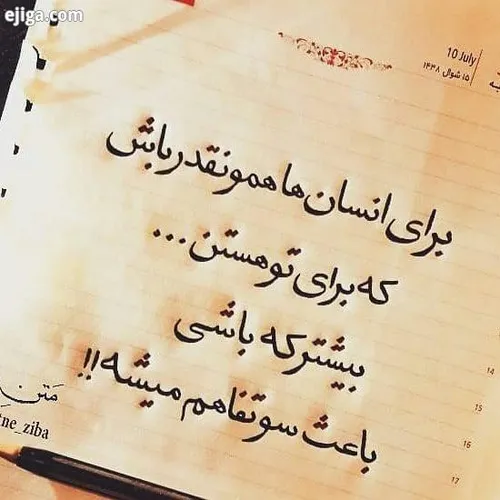 ejiga.com
10 July
۱۵ شوال ۱۴۳۸
برای انسان ها همونقدر باش
که برای تو هستن...
بیشتر که باشی
باعث سوتفاهم میشه!!
14
15
16
17
مَتنِ
ne_ziba